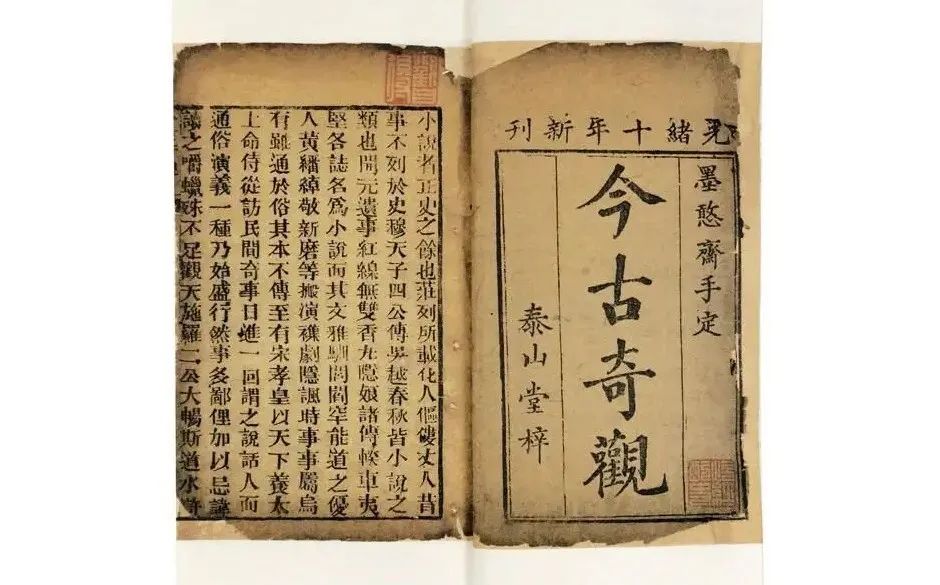 光緒十年新刊
墨憨齋手定
今古奇觀
泰山堂梓
小說者正史之餘也莊列所載化人傴僂丈人昔
事不列於史穆天子四公傳吳越春秋皆小說之
類也開元遺事紅線無雙香丸隱娘諸傳睽車夷
堅各誌名爲小說而其文雅馴閭閻罕能道之優
人黃繙綽敬新磨等搬演襍劇隱諷時事事屬烏
有雖通於俗其本不傳至有宋孝皇以天下養太
上命侍從訪民間奇事日進一回謂之說話人而
通俗演義一種乃始盛行然事多鄙俚加以忌諱
讀之嚼蠟殊不足觀天施羅二公大暢斯道水滸